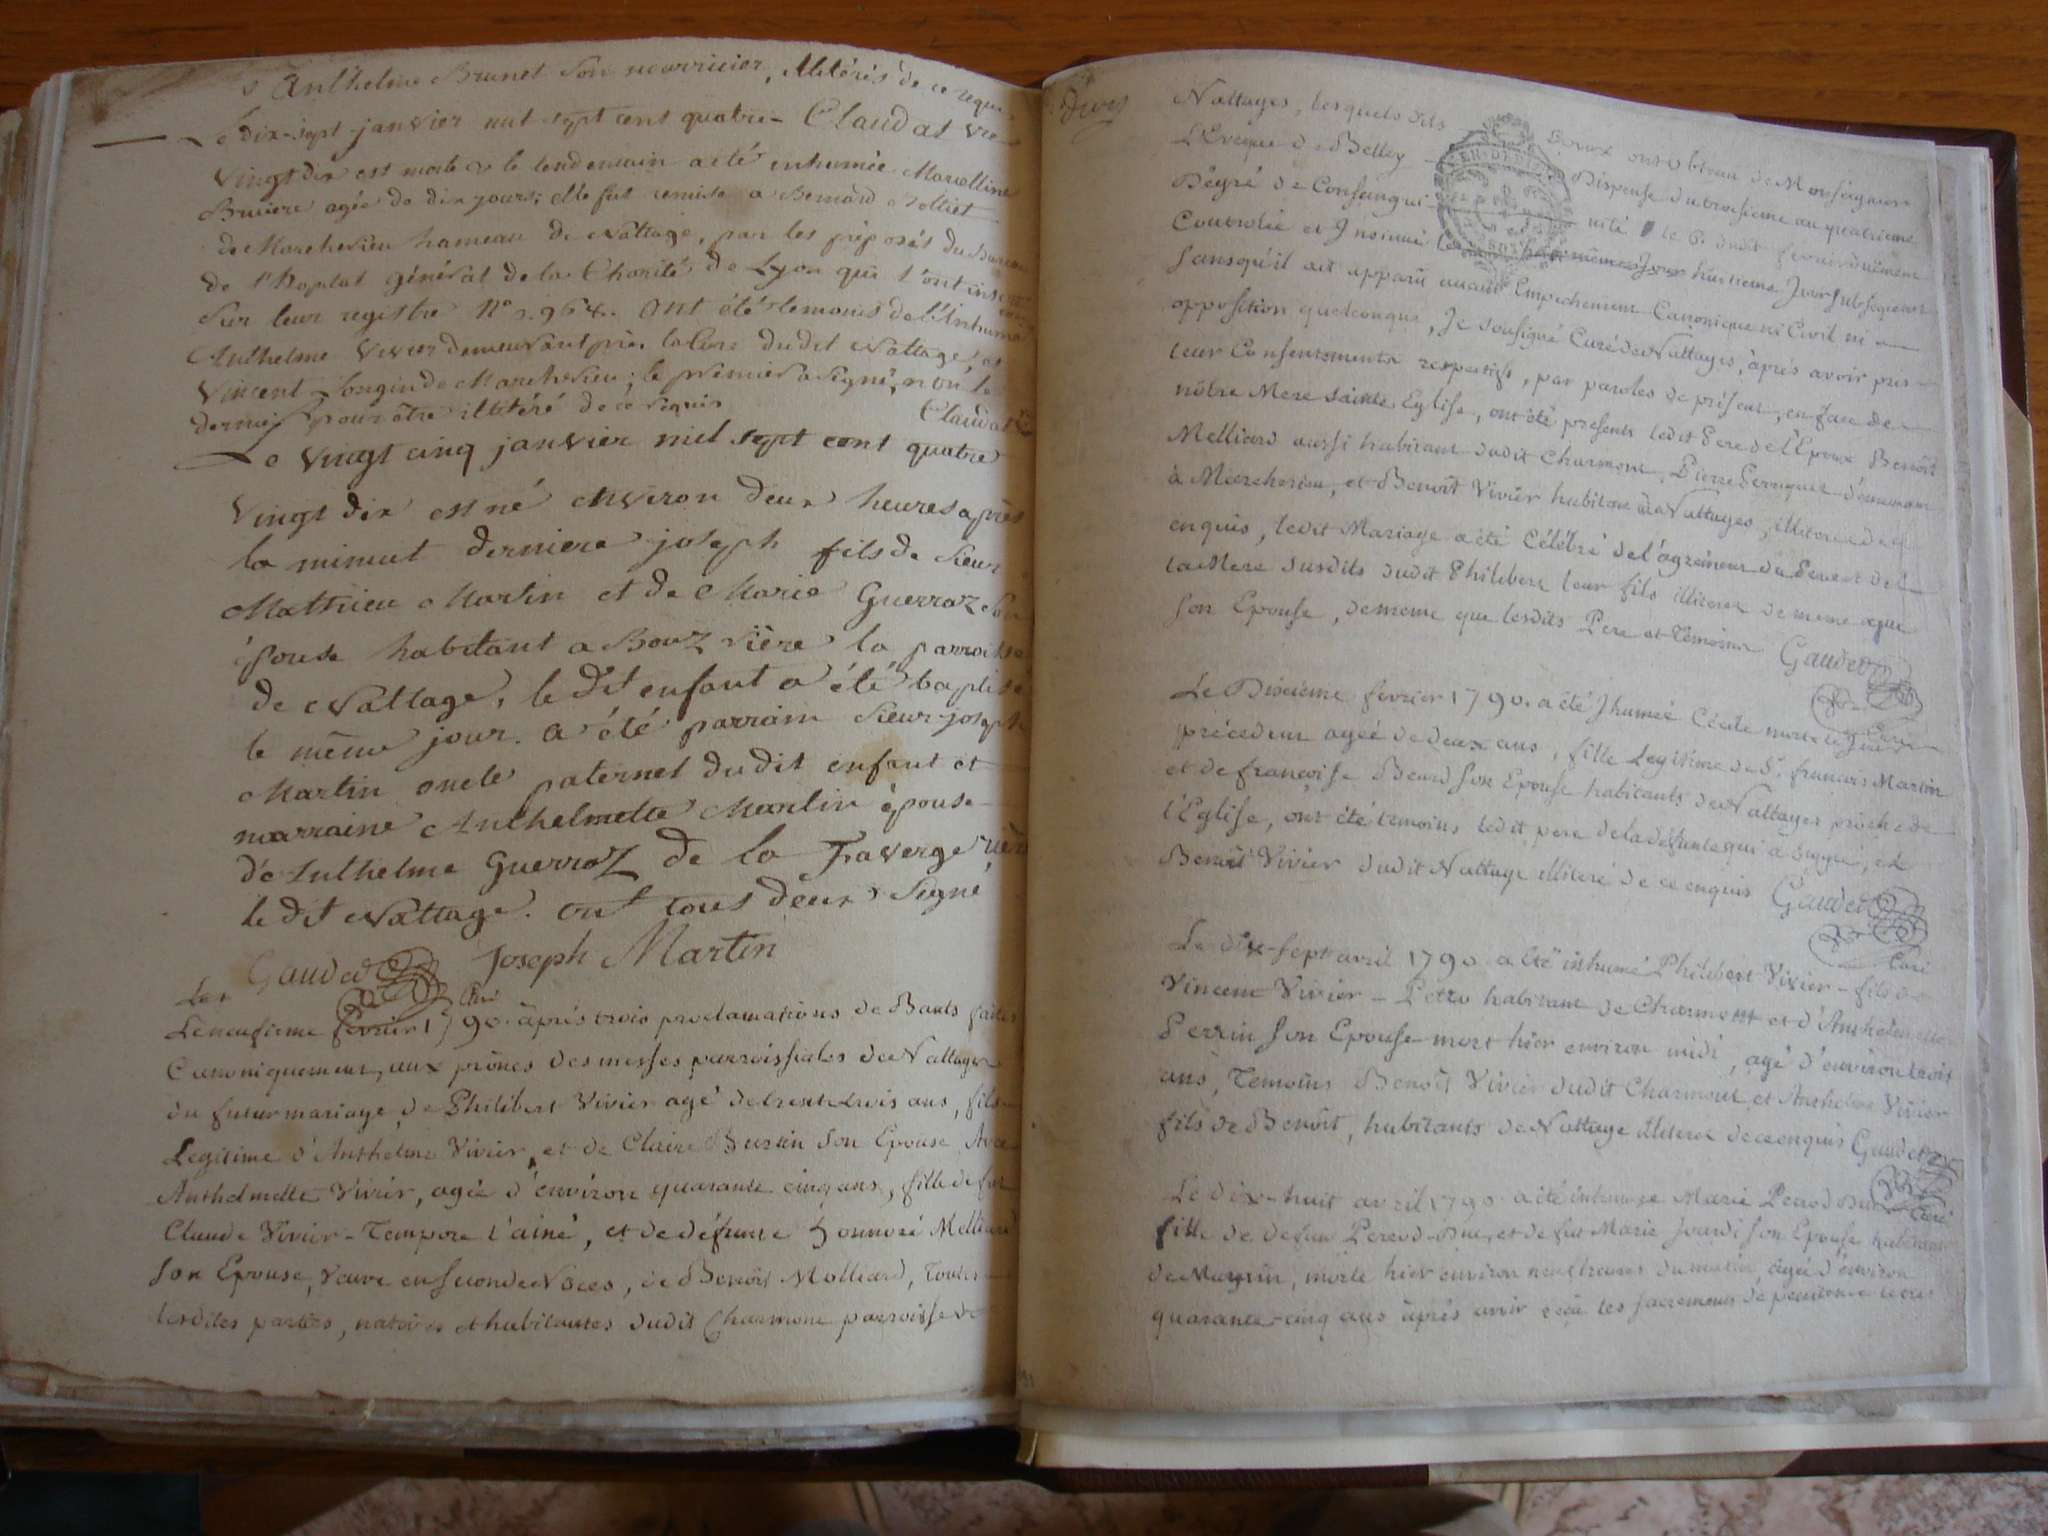 Anthelme Brunet son nourricier, illitérés de ce requis
Le dix-sept janvier mil sept cent quatre- Claudat vic
vingt dix est morte & le lendemain a été inhumée Marcelline
Bruiere agée de dix jours; elle fut remise a Bernard
de Marcherieu hameau de Nattage, par les préposés du Bureau
de l'hopital général de la Charité de Lyon qui l'ont inscrit
sur leur registre N° ont été temoins de l'inhuma
Anthelme Vivier demeurant près la Cure dudit Nattage, et
Vincent de Marcherieu; le premier a signé, non le
dernier pour être illitéré de ce requis Claudat
Le vingt cinq janvier mil sept cent quatre
vingt dix est né environ deux heures après
la minuit derniere joseph fils de sieur
Mathieu Martin et de Marie Guerraz son
épouse habitant a Bouz la parroisse
de Nattage, le dit enfant a été baptisé
le même jour. a été parrain sieur joseph
Martin oncle paternel dudit enfant et
marraine Anthelmette Martin épouse
d'Anthelme Guerraz de la Faverge
le dit Nattage. ont tous deux signé
Gaudet Joseph Martin
Le Curé
Le neufieme fevrier 1790. après trois proclamations de Bants faites
Canoniquement, aux prônes des messes parroissiales de Nattages
du futur mariage, de Philibert Vivier agé de trente trois ans, fils
Legitime d'Anthelme Vivier, et de Claire Bustin son Epouse, Avec
Anthelmette Vivier, agée d'environ quarante cinq ans, fille de feu
Claude Vivier-Tempore l'ainé, et de défunte honnoré Melliard
son Epouse, Veuve en seconde Noces, de Benoît Molliard, toutes
lesdites parties, natives et habitantes dudit Charmont parroisse de
Nattages, lesquels dits Epoux ont obtenu de Monseigneur
L'Eveque de Belley Dispense du troisieme au quatrieme
Dégré de Consangui nité le 6. dudit fevrier dûement
Controlée et Insinuée huitieme Jour subsequent
sansqu'il ait apparû aucun Empechement Canonique ni Civil ni
opposition quelconque, Je soussigné Curé de Nattages, après avoir pris
leur Consentements respectifs, par paroles de présent, en face de
nôtre Mere Sainte Eglise, ont été presents ledit Pere de l'Epoux Benoît
Melliard aussi habitant dudit Charmont, Pierre demeurant
à Marcherieu, et Benoît Vivier habitant de Nattages, illiteré de
enquis, ledit Mariage a été Célébré de l'agrément du Pere et de
la Mere susdits dudit Philibert leur fils illiteré de meme que
son Epouse, de meme que lesdits Pere et Temoins Gaudet
Curé
Le Dixieme fevrier 1790. a été Jhumée Cécile morte le jour
précedent agée de deux ans, fille Legitime de Sr. françois Martin
et de françoise Beard son Epouse habitants de Nattages proche de
l'Eglise, ont été temoins ledit pere de la défunte qui a signé, et
Benoît Vivier dudit Nattage illiteré de ce enquis Gaudet
Curé
Le dix-sept avril 1790 a été inhumé Philibert Vivier - fils de
Vincent Vivier - habitant de Charmont et d'Anthelmette
Perrin son Epouse mort hier environ midi, agé d'environ trois
ans, Temoins Benoît Vivier dudit Charmont, et Anthelme Vivier
fils de Benoît, habitants de Nattage illiteré de ce enquis Gaudet
Curé
Le dix-huit avril 1790 a été inhumée Marie Perrod
fille de defunt Perrod et de feu Marie Jourdi son Epouse habitante
morte hier environ neuf heures du matin, agée d'environ
quarante-cinq ans après avoir reçu les sacrements de penitence